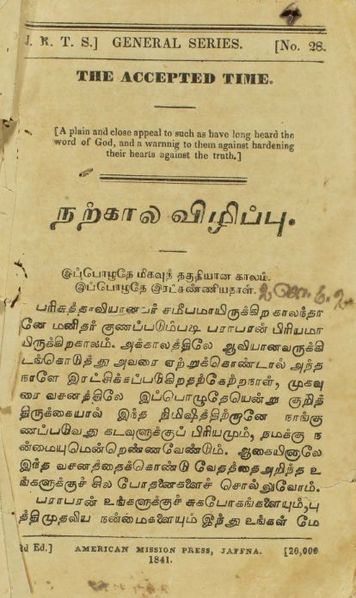 J. R. T. S.] GENERAL SERIES. [No. 28.
THE ACCEPTED TIME.
[A plain and close appeal to such as have long heard the
word of God, and a warnnig to them against hardening
their hearts against the truth.]
நற்கால விழிப்பு.
இப்பொழுதே மிகவுந் தகுதியான காலம்.
இப்பொழுதே இரட்சண்ணியநாள்.
பரிசுத்தாவியானவர் சமீபமாயிருக்கிற காலந்தா
னே மனிதர் குணப்படும்படி பராபரன் பிரியமா
யிருக்கிறகாலம். அக்காலத்திலே ஆவியானவருக்கி
டங்கொடுத்து அவரை ஏற்றுக்கொண்டால் அந்த
நாளே இரட்சிக்கப்படுகிறதற்கேற்றநாள், முகவு
ரை வசனத்திலே இப்பொழுதேயென்று குறித்
திருக்கையால் இந்த நிமிஷத்திற்றானே நாங்கு
ணப்படுவது கடவுளுக்குப் பிரியமும், நமக்கு ந
ன்மையுமென்றெண்ணவேண்டும். ஆகையினாலே
இந்த வசனத்தைக்கொண்டு வேதத்தைஅறிந்த உ
ங்களுக்குச் சில போதனைகளைச் சொல்லுவோம்.
பராபரன் உங்களுக்குச் சுகபோகங்களையும்,பு
த்திமுதலிய நன்மைகளையும் இந்து உங்கள் மே
Ed.] AMERICAN MISSION PRESS, JAFFNA. [20,000
1841.